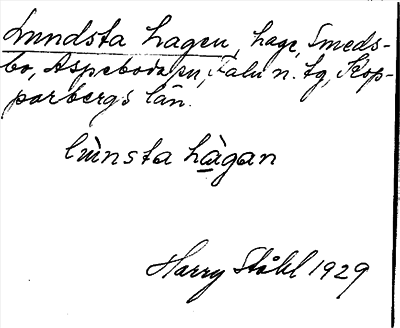 Lundsta hagen, hage, Smeds-
bo, Aspeboda sn, Falu n. tg, Kop-
parbergs län.
lùnsta hàgan
Harry Ståhl 1929